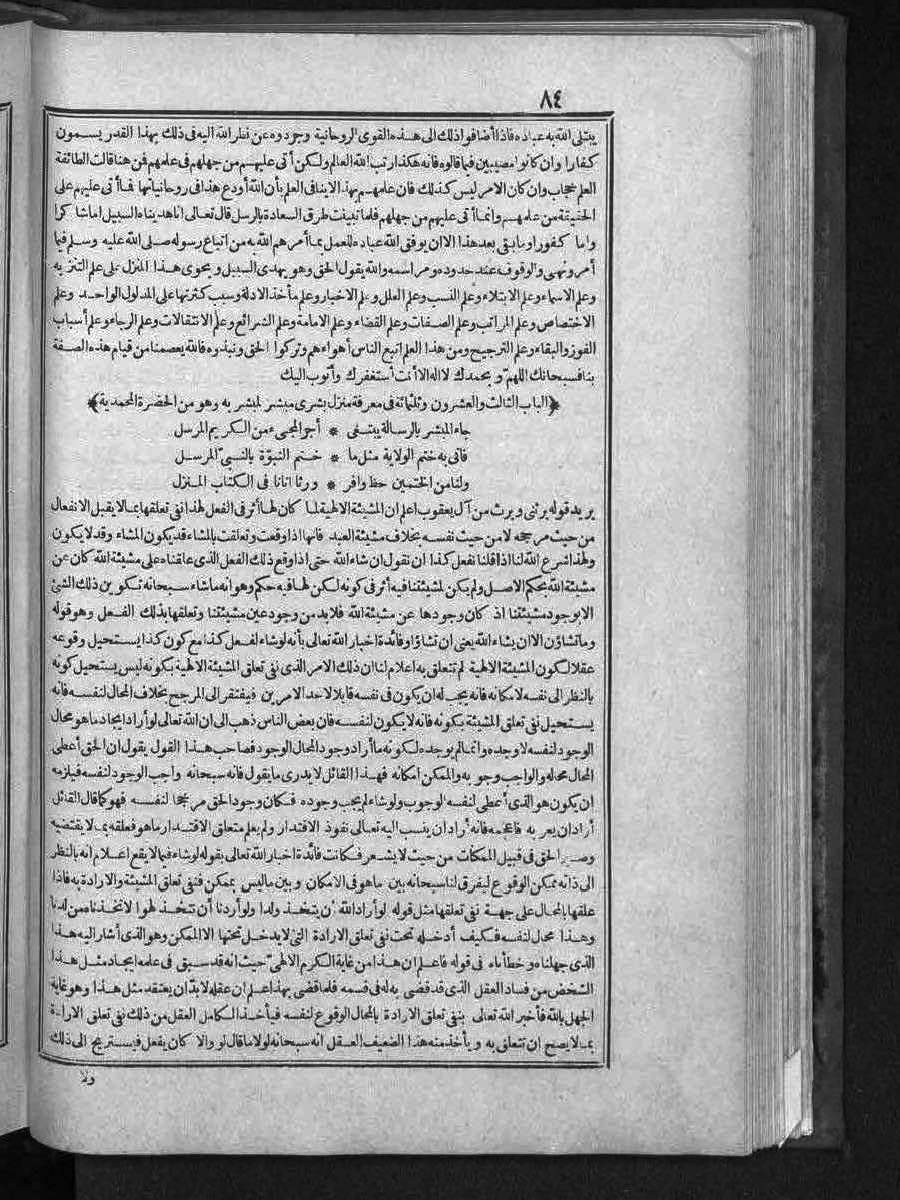 ٨٤
يبتلى الله به عباده فاذا أضافوا ذلك الى هذه القوى الروحانية وجردوه عن نظر الله اليه فى ذلك بهذا القدر يسمون
كفارا وان كانوا مصيبين فيما قالوه فانه هكذا رتب الله العالم ولكن أتى عليهم من جهلهم فى علمهم فن هنا قالت الطائفة
العلم حجاب وان كان الامر ليس كذلك فان علمهم بهذا لا ينافى العلم بأن الله أودع هذا فى روحانياتها فما أتى عليهم على
الحقيقة من علمهم وانما أتى عليهم من جهلهم فلما تبينت طرق السعادة بالرسل قال تعالى انا هديناه السبيل اما شاكرا
واما كفورا وما بقى بعد هذا الا ان يوفق الله عباده للعمل بما أمرهم الله به من اتباع رسوله صلى الله عليه وسلم فيما
أمر ونهى والوقوف عند حدوده ومراسمه والله يقول الحق وهو يهدى السبيل ويحوى هذا المنزل على علم التنزيه
وعلم الاسماء وعلم الابتلاء وعلم النسب وعلم العلل وعلم الاخبار وعلم مأخذ الادلة وسبب كثرتها على المدلول الواحد وعلم
الاختصاص وعلم المراتب وعلم الصفات وعلم القضاء وعلم الامامة وعلم الشرائع وعلم الانتقالات وعلم الرجاء وعلم أسباب
الفوز والبقاء وعلم الترجيح ومن هذا العلم اتبع الناس أهواءهم وتركوا الحق ونبذوه فالله يعصمنا من قيام هذه الصفة
بنا فسبحانك اللهم وبحمدك لا اله الا أنت أستغفرك وأتوب اليك
﴿الباب الثالث والعشرون وثلثمائة فى معرفة منزل بشرى مبشر لمبشر به وهو من الحضرة المحمدية﴾
جاء المبشر بالرسالة يبتغى * أجر المجىء من الكريم المرسل
فاتى به ختم الولاية مثل ما * ختم النبوّة بالنبىّ المرسل
ولنا من الختمين حظ وافر * ورثا اتانا فى الكتاب المنزل
يريد قوله يرثنى ويرث من آل يعقوب اعلم ان المشيئة الالهية لما كان لها أثر فى الفعل لهذا نفى تعلقها بما لا يقبل الانفعال
من حيث مرجحه لا من حيث نفسه بخلاف مشيئة العبد فانها اذا وقعت وتعلقت بالمشاء قد يكون المشاء وقد لا يكون
ولهذا شرع الله لنا اذا قلنا نفعل كذا ان نقول ان شاء الله حتى اذا وقع ذلك الفعل الذى علقناه على مشيئة الله كان عن
مشيئة الله بحكم الاصل ولم يكن لمشيئتنا فيه أثر فى كونه لكن لها فيه حكم وهو انه ما شاء سبحانه تكوين ذلك الشئ
الا بوجود مشيئتنا اذ كان وجودها عن مشيئة الله فلا بد من وجود عين مشيئتنا وتعلقها بذلك الفعل وهو قوله
وما تشاؤن الا ان يشاء الله يعنى ان تشاؤا وفائدة اخبار الله تعالى بأنه لو شاء لفعل كذا مع كون كذا يستحيل وقوعه
عقلا لكون المشيئة الالهية لم تتعلق به اعلام لنا ان ذلك الامر الذى نفى تعلق المشيئة الالهية بكونه ليس يستحيل كونه
بالنظر الى نفسه لامكانه فانه يجب له ان يكون فى نفسه قابلا لاحد الامرين فيفتقر الى المرجح بخلاف المحال لنفسه فانه
يستحيل نفى تعلق المشيئة بكونه فانه لا يكون لنفسه فان بعض الناس ذهب الى ان الله تعالى لو أراد ايجاد ما هو محال
الوجود لنفسه لاوجده وانما لم يوجده لكونه ما أراد وجود المحال الوجود فصاحب هذا القول يقول ان الحق أعطى
المحال محاله والواجب وجوبه والممكن امكانه فهذا القائل لا يدرى ما يقول فانه سبحانه واجب الوجود لنفسه فيلزمه
ان يكون هو الذى أعطى لنفسه الوجوب ولو شاء لم يجب وجوده فكان وجود الحق مرجحا لنفسه فهو كما قال القائل
أراد ان يعربه فاعجمه فانه أراد ان ينسب اليه تعالى نفوذ الاقتدار ولم يعلم متعلق الاقتدار ما هو فعلقه بما لا يقتضيه
وصير الحق فى قبيل الممكنات من حيث لا يشعر فكانت فائدة اخبار الله تعالى بقوله لو شاء فيما لا يقع اعلام انه بالنظر
الى ذاته ممكن الوقوع ليفرق لنا سبحانه بين ما هو فى الامكان وبين ما ليس بممكن فنفى تعلق المشيئة والارادة به فاذا
علقها بالمحال على جهة نفى تعلقها مثل قوله لو أراد الله أن يتخذ ولدا ولو أردنا أن نتخذ لهوا لاتخذناه من لدنا
وهذا محال لنفسه فكيف أدخله تحت نفى تعلق الارادة التى لا يدخل تحتها الا الممكن وهو الذى أشار اليه هذا
الذى جهلناه وخطأناه فى قوله فاعلم ان هذا من غاية الكرم الالهى حيث انه قد سبق فى علمه ايجاد مثل هذا
الشخص من فساد العقل الذى قد قضى به له فى قسمه فلما قضى بهذا علم ان عقله لا بدّ ان يعتقد مثل هذا وهو غاية
الجهل بالله فأخبر الله تعالى بنفى تعلق الارادة بالمحال الوقوع لنفسه فيأخذ الكامل العقل من ذلك نفى تعلق الارادة
بما لا يصح ان تتعلق به ويأخذ منه هذا الضعيف العقل انه سبحانه لولا ما قال لو والا كان يفعل فيستريح الى ذلك
ولا